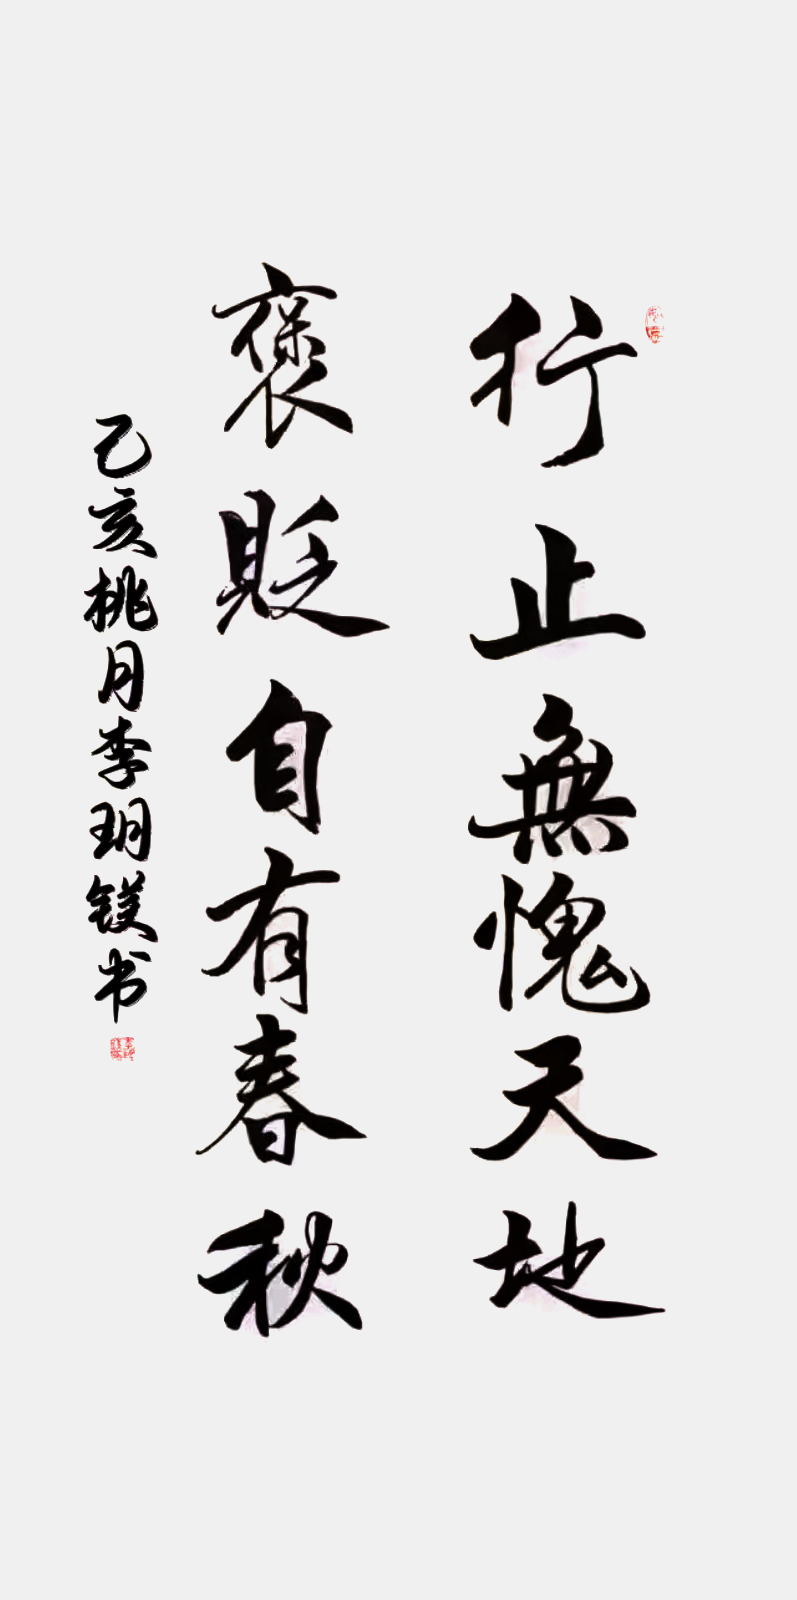 行止無愧天地
褒貶自有春秋
乙亥桃月李玥镁书